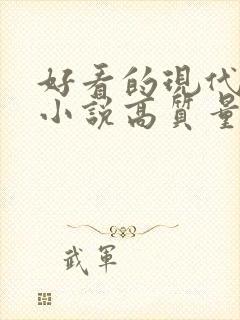 好看的現代
小説高質量
武軍